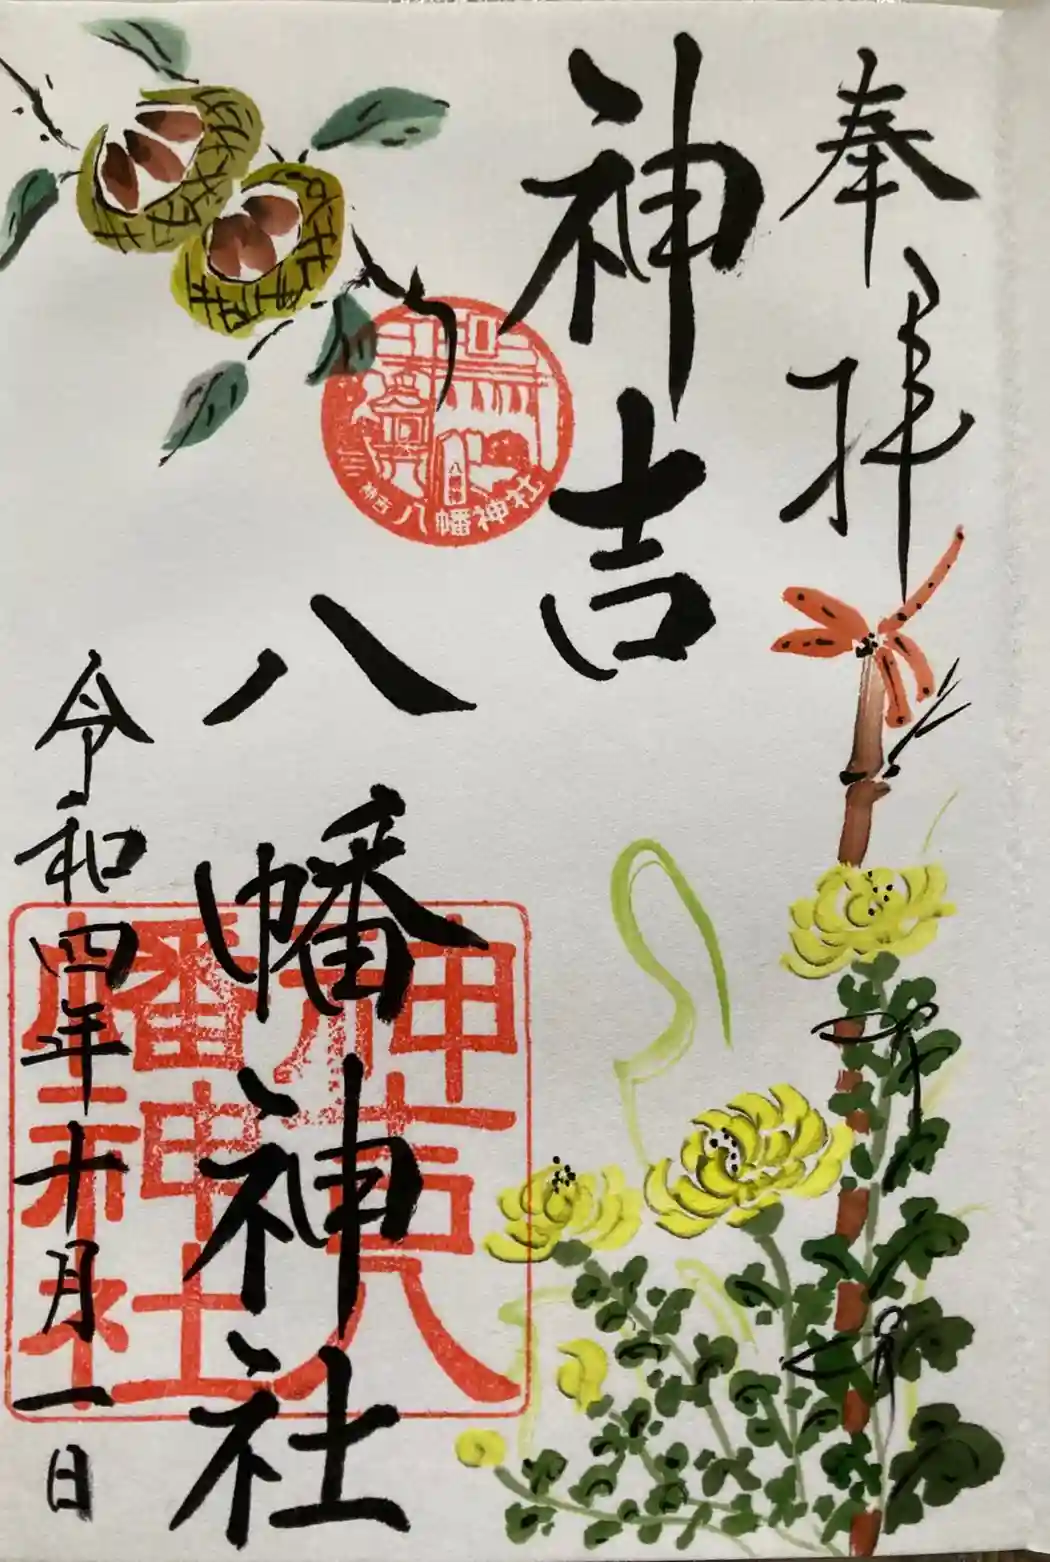 奉拝
神吉
八幡神社
令和四年十月一日
神吉八幡神社
神吉八幡神社